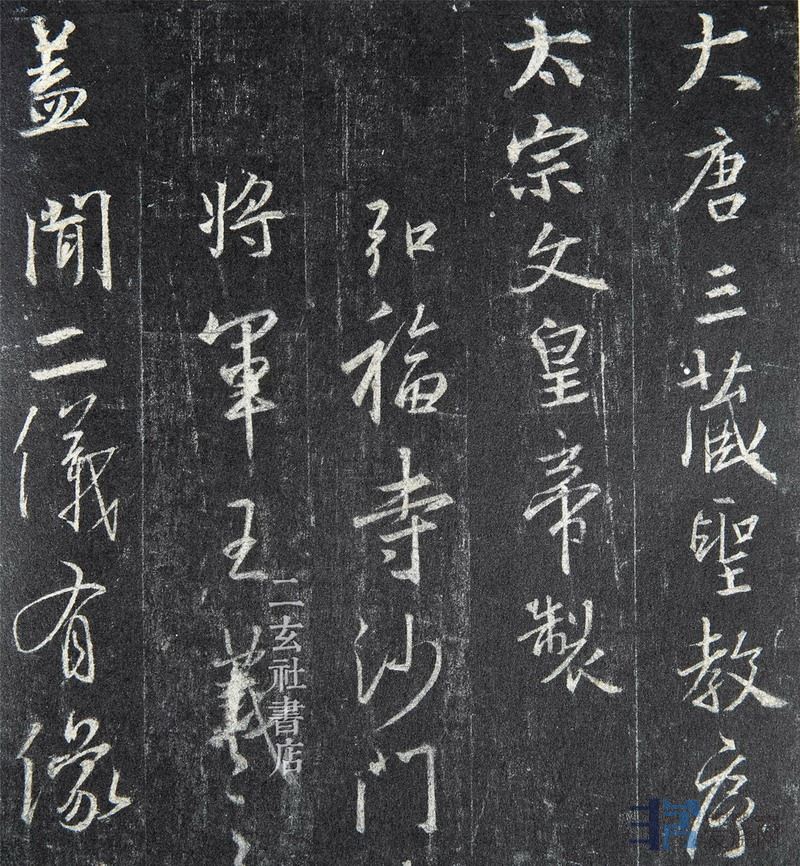 大唐三藏聖教序
太宗文皇帝製
弘福寺沙門
將軍王羲
蓋聞二儀有像
二玄社書店